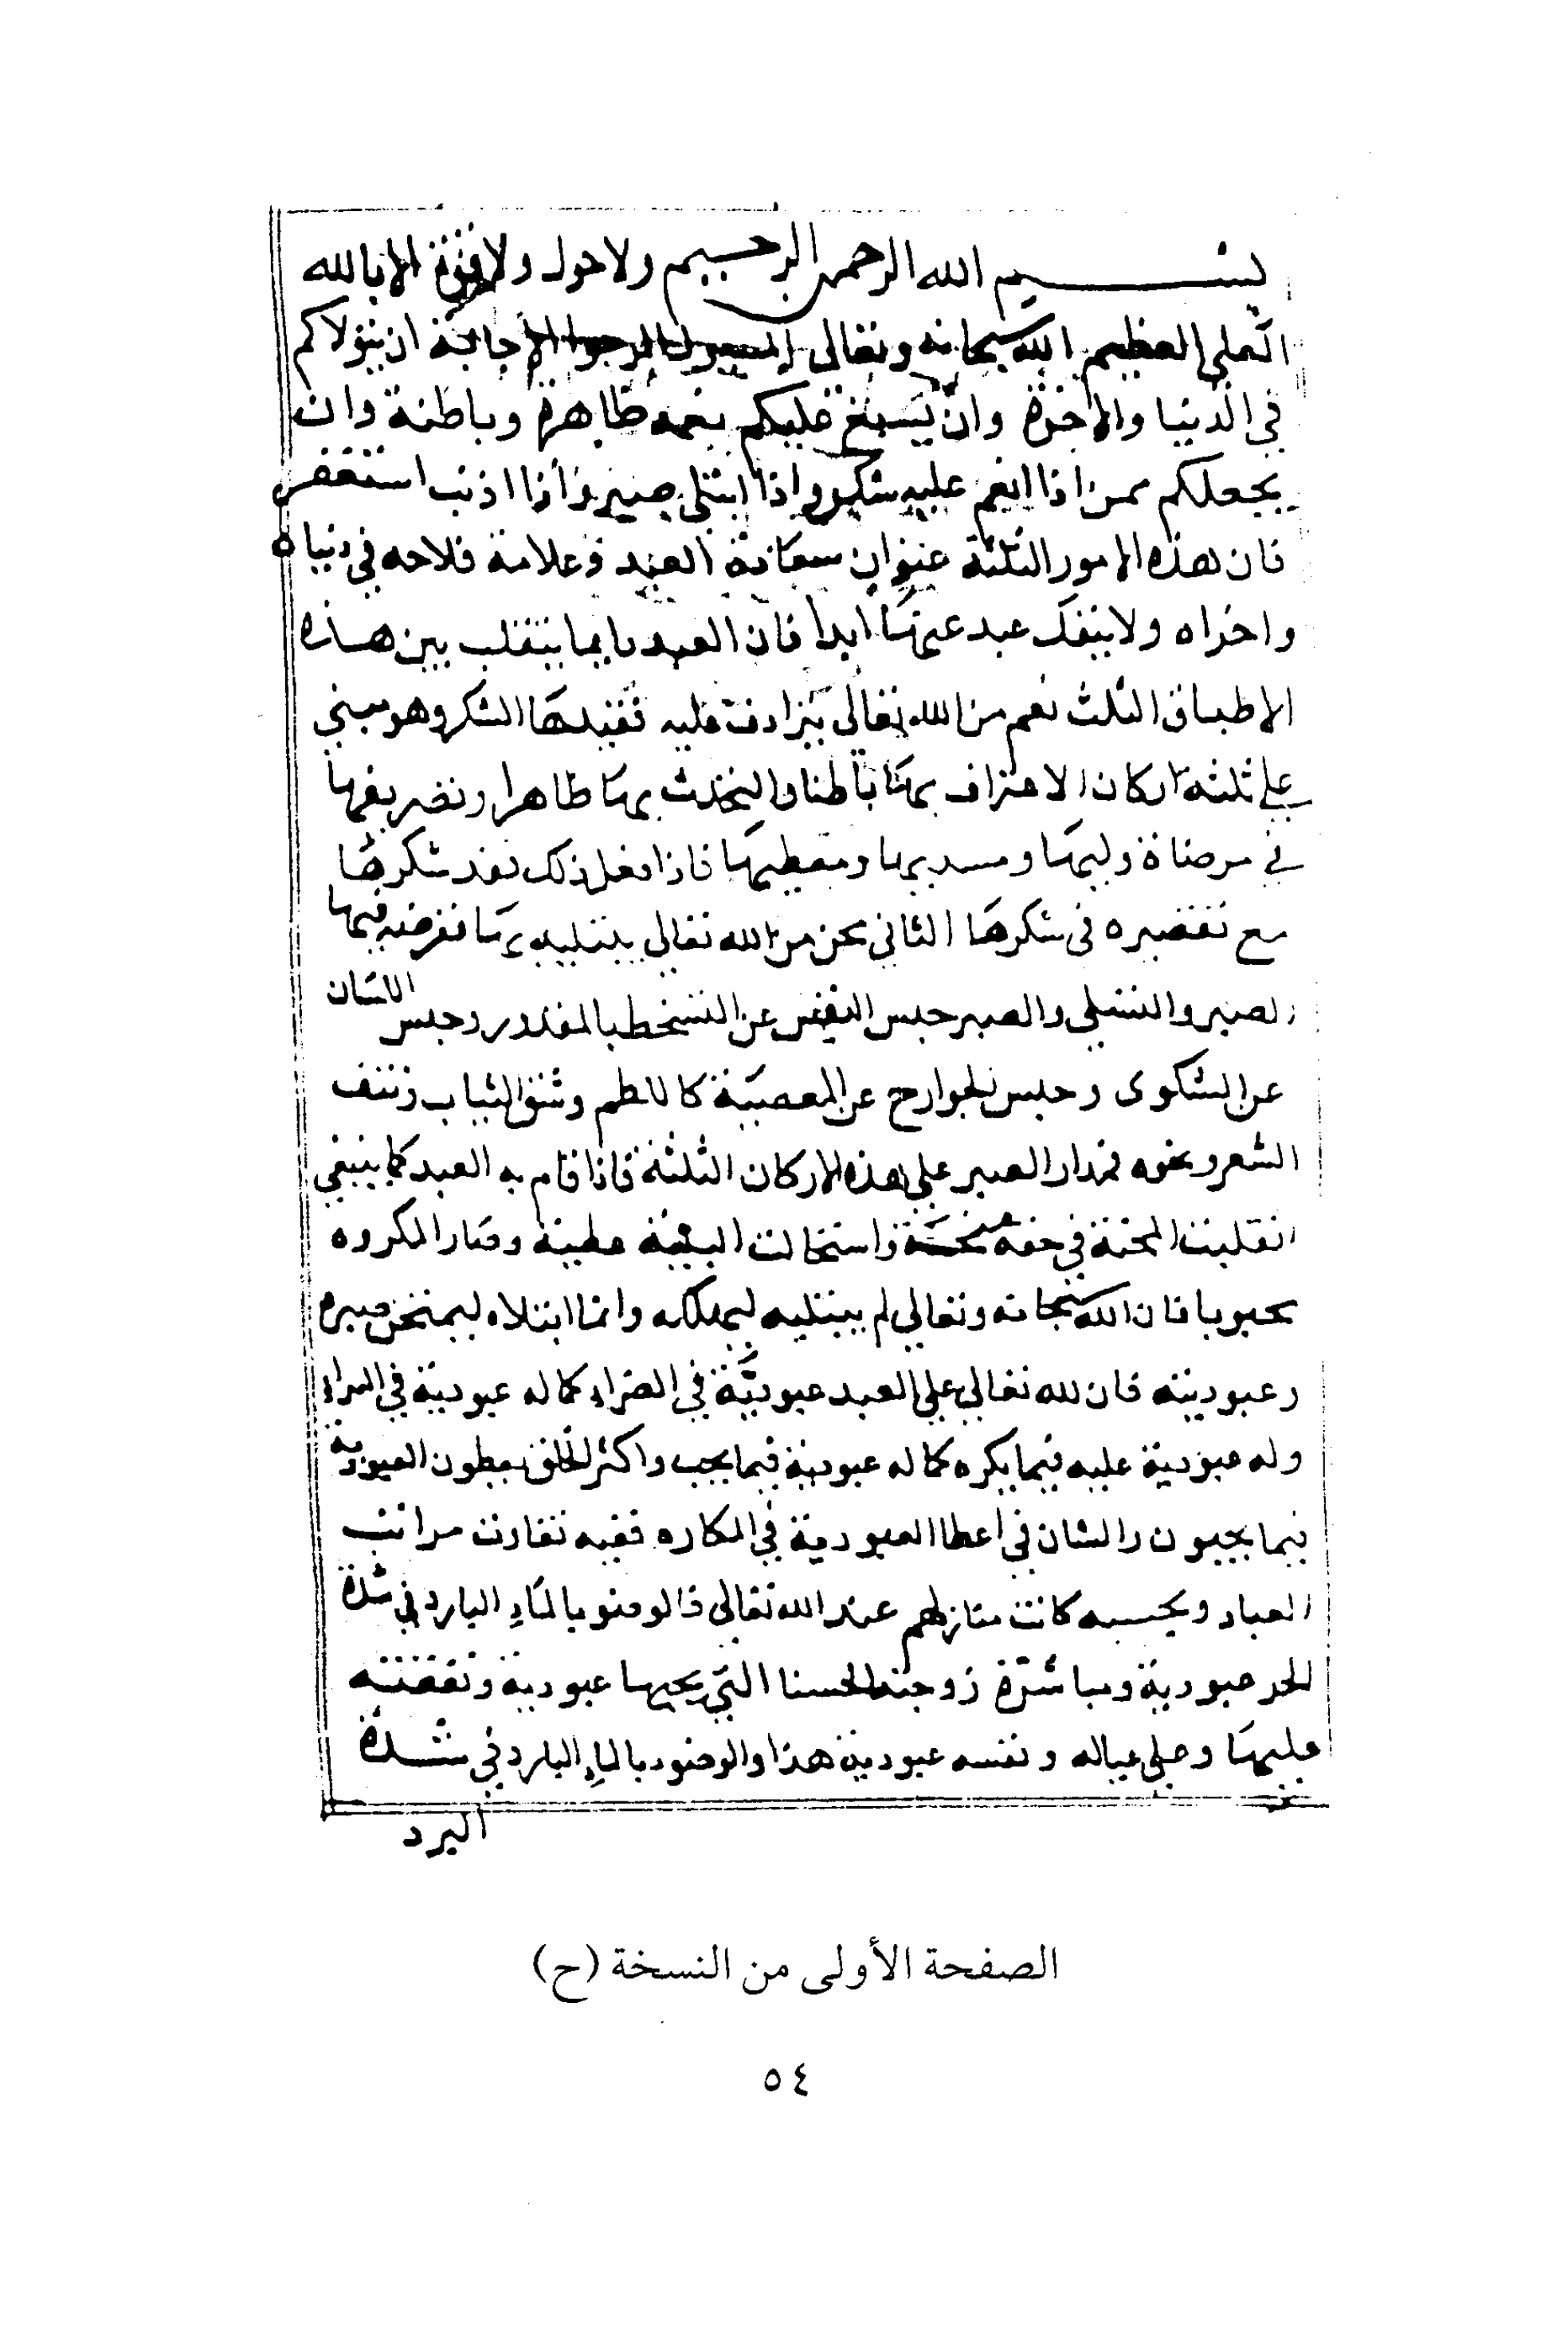 بسم الله الرحمن الرحيم ولا حول ولا قوة الا بالله
العلي العظيم الله سبحانه وتعالى المسول المرجوا الاجابة ان يتولاكم
في الدنيا والاخرة وان يسبغ عليكم نعمه ظاهرة وباطنة وان
يجعلكم ممن اذا انعم عليه شكر واذا ابتلى صبر واذا اذنب استغفر
فان هذه الامور الثلثة عنوان سعادة العبد وعلامة فلاحه في دنياه
واخراه ولا ينفك عبد عنها ابدا فان العبد دايما يتقلب بين هذه
الاطباق الثلث نعم من الله تعالى تترادف عليه فقيدها الشكر وهو مبني
على ثلثة اركان الاعتراف بها باطنا والتحدث بها ظاهرا وتصريفها
في مرضاة وليها ومسديها ومعطيها فاذا فعل ذلك فقد شكرها
مع تقصيره في شكرها الثاني محن من الله تعالى يبتليه بها ففرضه فيها
الصبر والتسلي والصبر حبس النفس عن التسخط بالمقدور وحبس اللسان
عن الشكوى وحبس الجوارح عن المعصية كاللطم وشق الثياب ونتف
الشعر ونحوه فمدار الصبر على هذه الاركان الثلثة فاذا قام به العبد كما ينبغي
انقلبت المحنة في حقه منحة واستحالت البلية عطية وصار المكروه
محبوبا فان الله سبحانه وتعالى لم يبتليه ليهلكه وانما ابتلاه ليمتحن صبره
وعبوديته فان لله تعالى على العبد عبودية في الضراء كما له عبودية في السراء
وله عبودية عليه فيما يكره كما له عبودية فيما يحب واكثر الخلق يعطون العبودية
فيما يحبون والشان في اعطا العبودية في المكاره ففيه تفاوت مراتب
العباد وبحسبه كانت منازلهم عند الله تعالى فالوضو بالماء البارد في شدة
الحر عبودية ومباشرة زوجته الحسنا التي يحبها عبودية ونفقته
عليها وعلى عياله ونفسه عبودية هذا والوضوء بالماء البارد في شدة
البرد
الصفحة الأولى من النسخة (ح)
٥٤